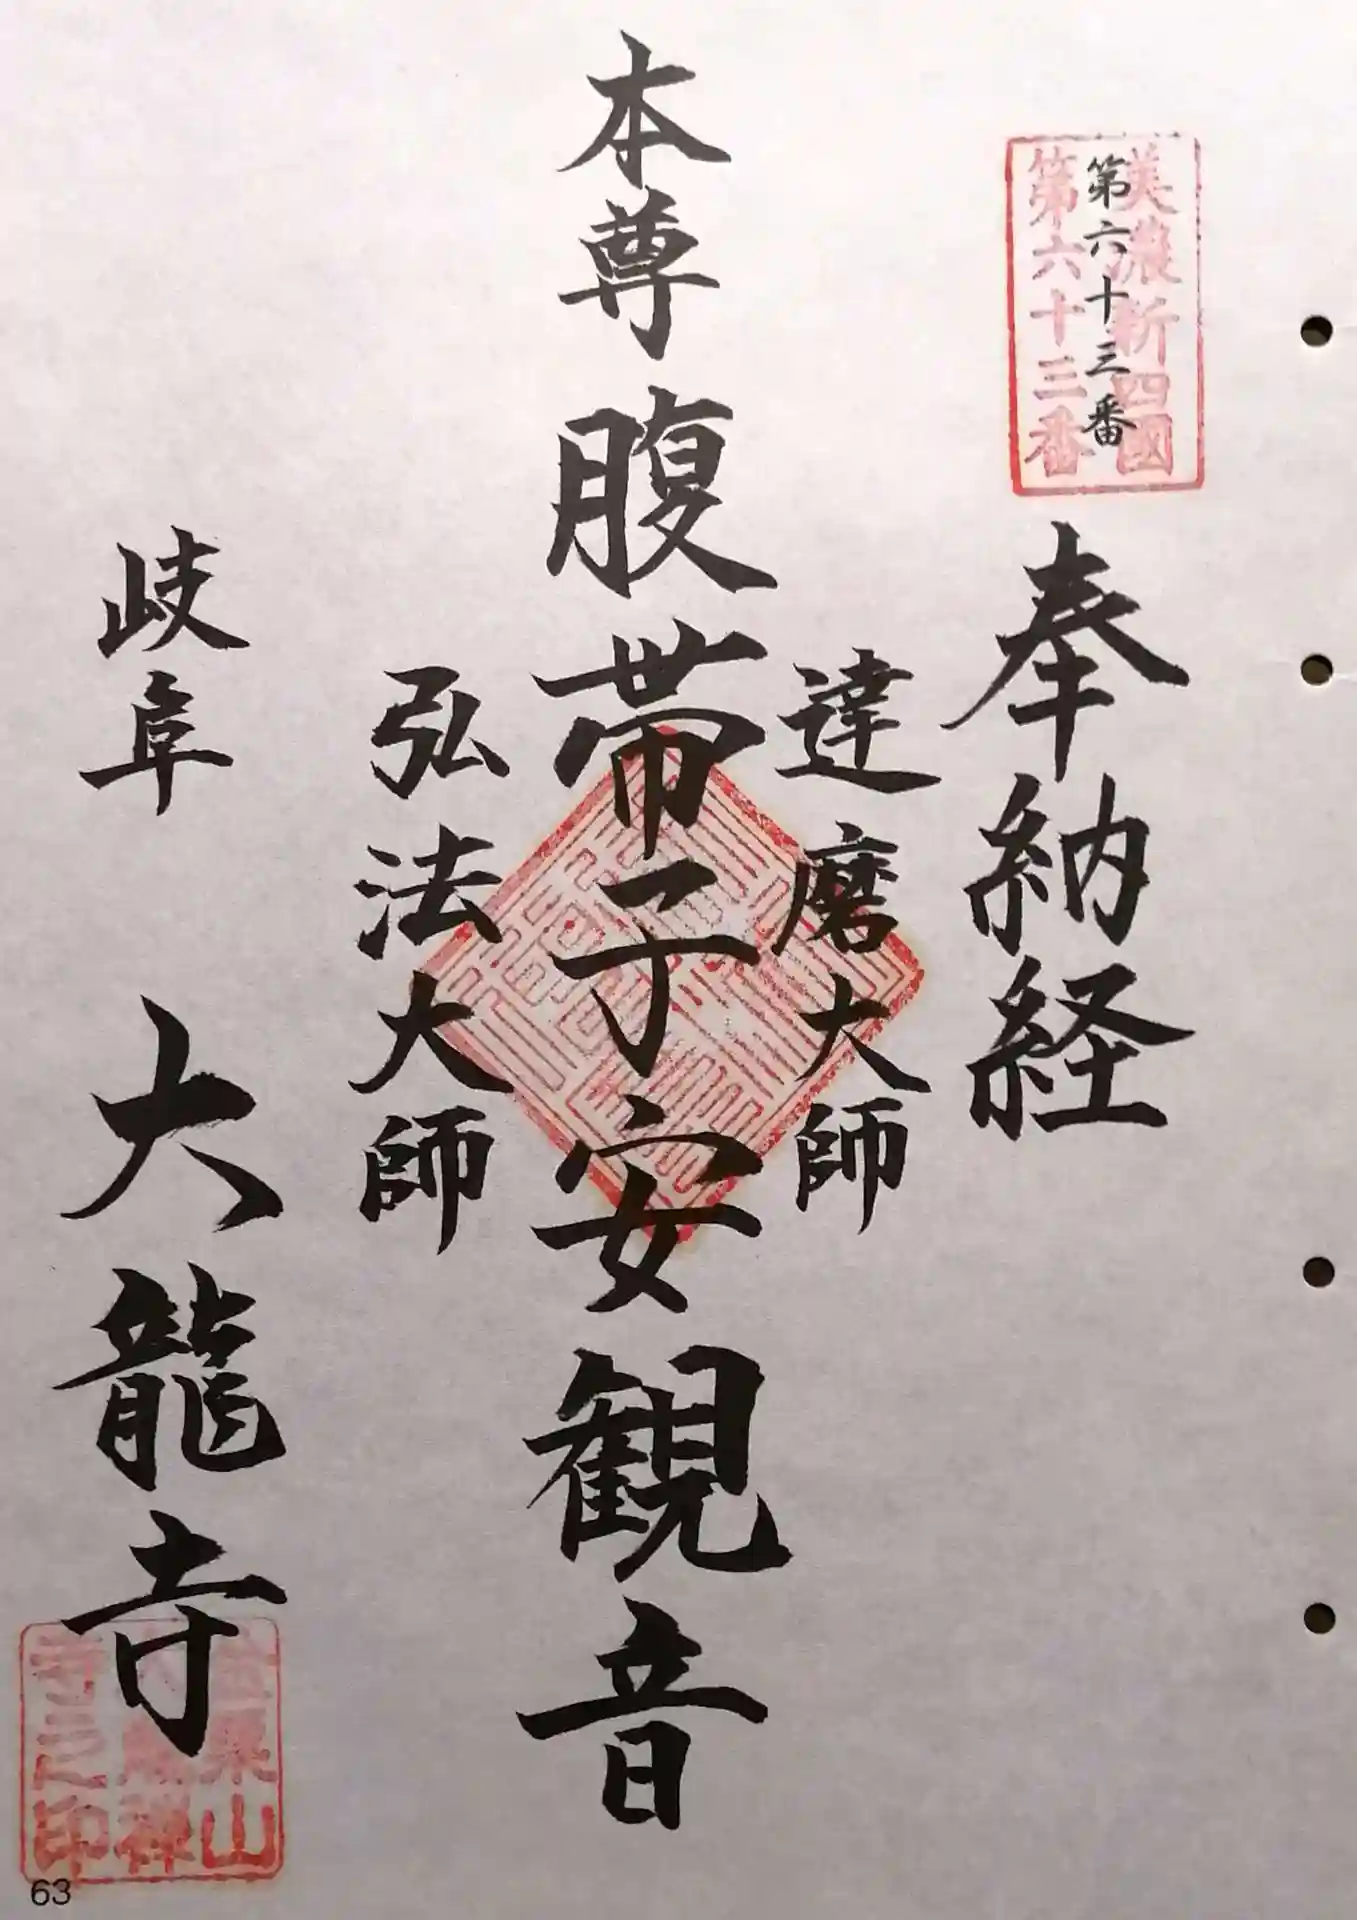 美濃新四國
第六十三番
第六十三番
奉納経
達磨大師
本尊腹帯子安観音
弘法大師
岐阜 大龍寺
粟山
禅
寺之印
63